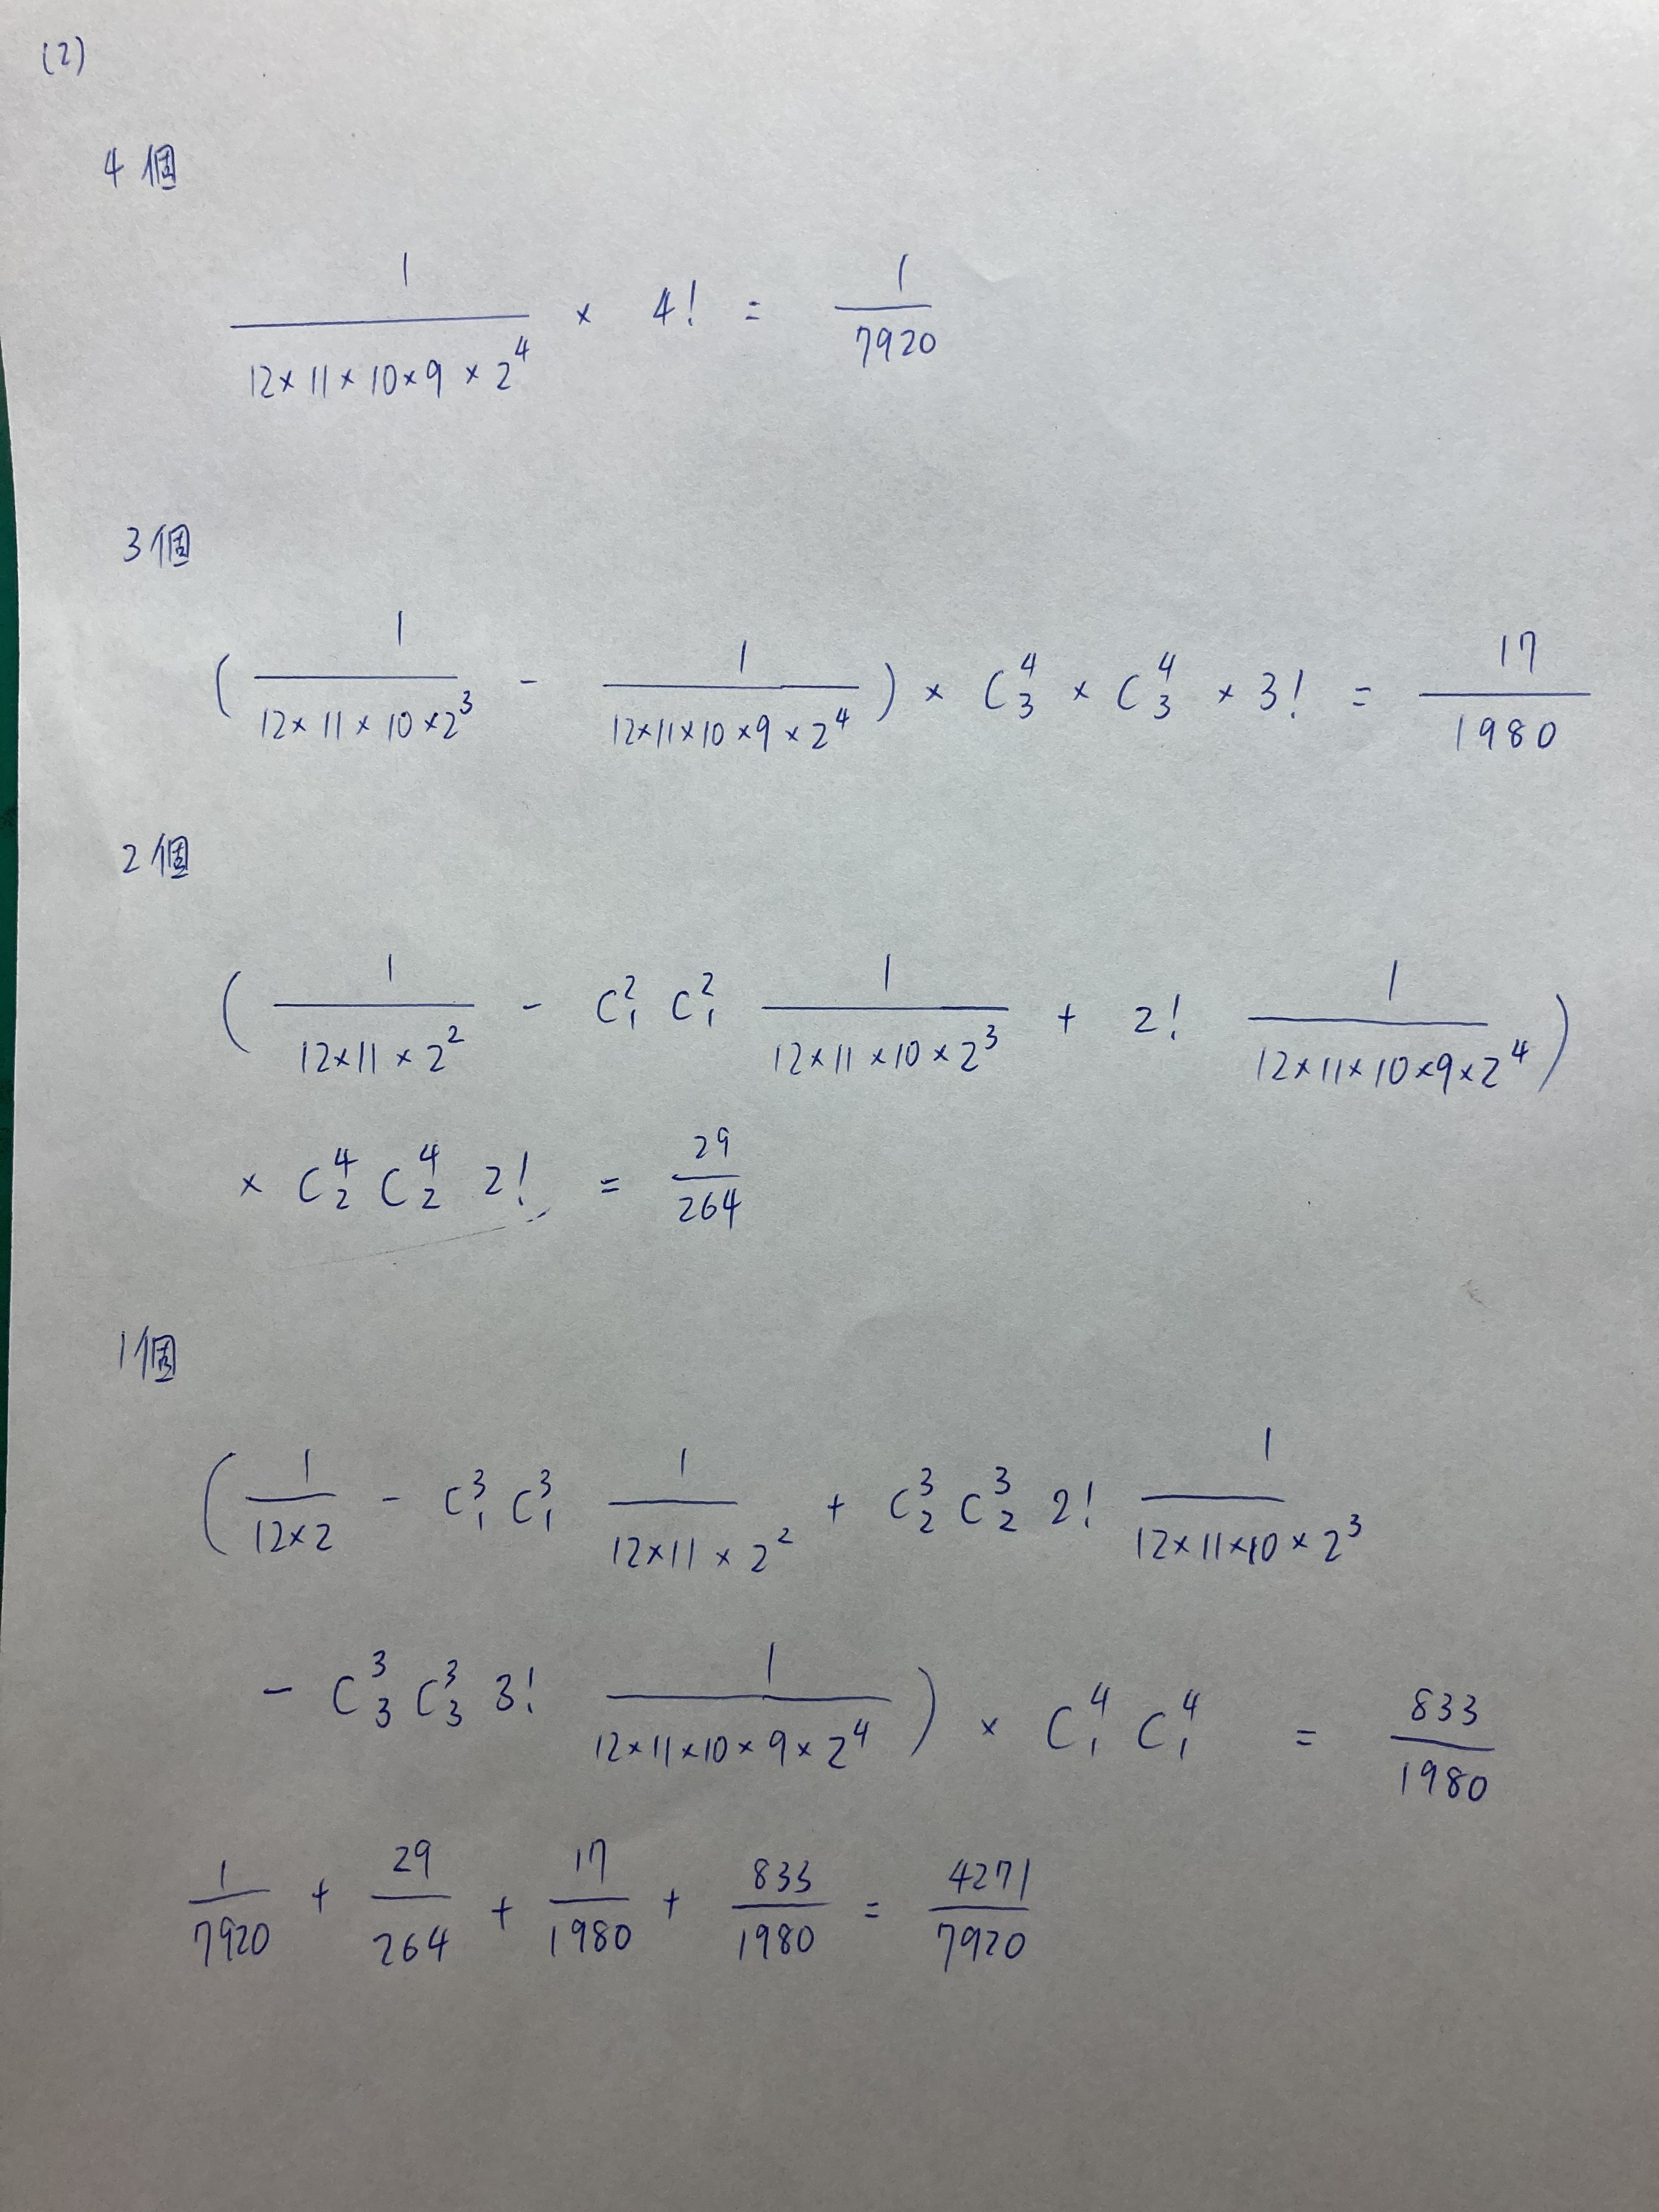 (2)
4個
1/(12×11×10×9×2^4) × 4! = 1/7920
3個
(1/(12×11×10×2^3) - 1/(12×11×10×9×2^4)) × C^4_3 × C^4_3 × 3! = 17/1980
2個
(1/(12×11×2^2) - C^2_1 C^2_1 1/(12×11×10×2^3) + 2! 1/(12×11×10×9×2^4))
× C^4_2 C^4_2 2! = 29/264
1個
(1/(12×2) - C^3_1 C^3_1 1/(12×11×2^2) + C^3_2 C^3_2 2! 1/(12×11×10×2^3)
- C^3_3 C^3_3 3! 1/(12×11×10×9×2^4)) × C^4_1 C^4_1 = 833/1980
1/7920 + 29/264 + 17/1980 + 833/1980 = 4271/7920